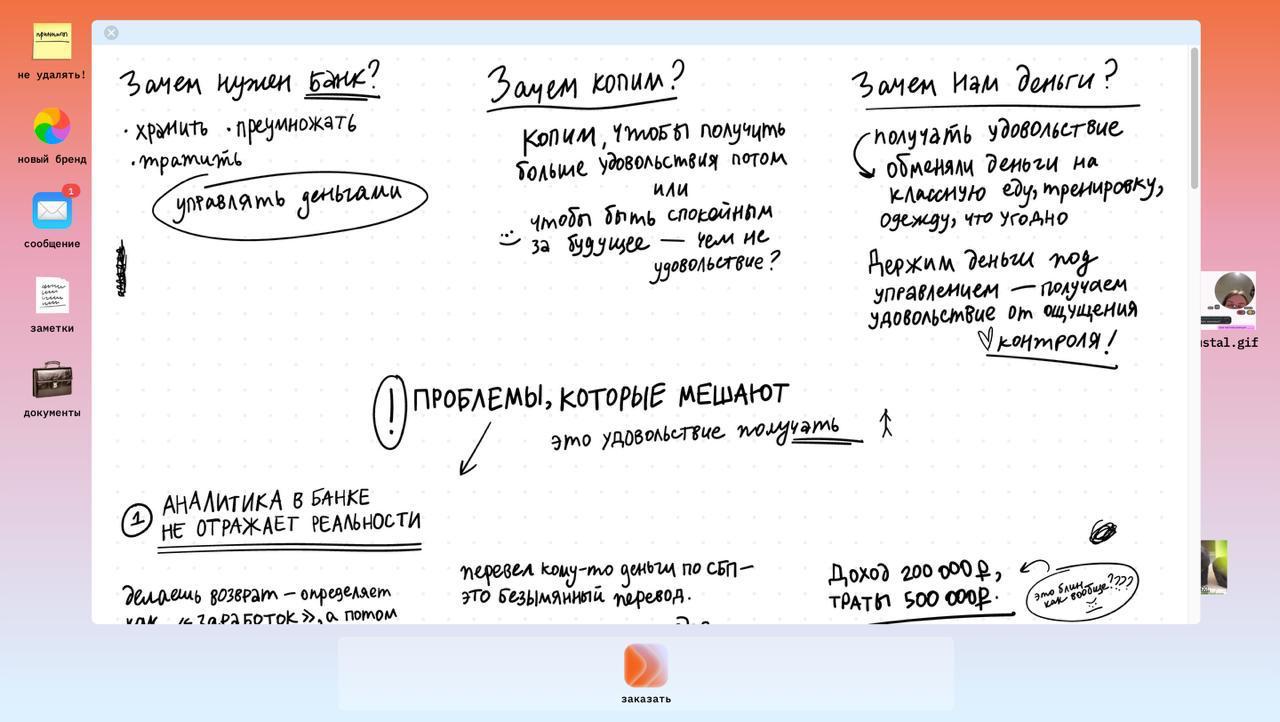 принтит
не удалять!
новый бренд
1
сообщение
заметки
документы
Зачем нужен банк?
· хранить · преумножать
· тратить
управлять деньгами
Зачем копим?
Копим, чтобы получить
больше удовольствия потом
или
чтобы быть спокойным
за будущее — чем не
удовольствие?
Зачем нам деньги?
получать удовольствие
обменяли деньги на
классную еду, тренировку,
одежду, что угодно
Держим деньги под
управлением — получаем
удовольствие от ощущения
контроля!
! ПРОБЛЕМЫ, КОТОРЫЕ МЕШАЮТ
это удовольствие получать
1 АНАЛИТИКА В БАНКЕ
НЕ ОТРАЖАЕТ РЕАЛЬНОСТИ
делаешь возврат — определяет
как «ЗАРАБОТОК», а потом
перевел кому-то деньги по СБП —
это безымянный перевод.
Доход 200 000₽,
траты 500 000₽.
это блин
как вообще????
ustal.gif
заказать